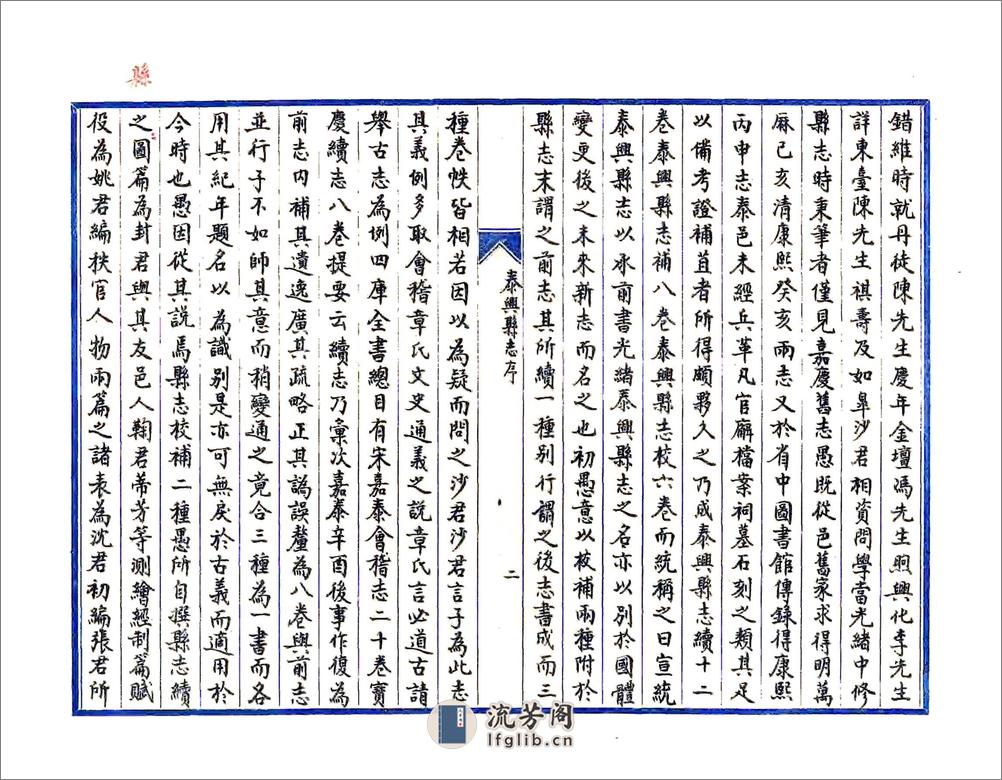 錯維時就丹徒陳先生慶年金壇馮先生煦興化李先生
詳東臺陳先生祺壽及如皐沙君相資問學當光緒中修
縣志時秉筆者僅見嘉慶舊志愚既從邑舊家求得明萬
厤己亥清康熙癸亥兩志又於省中圖書館傳錄得康熙
丙申志泰邑未經兵革凡官廨檔案祠墓石刻之類其足
以備考證補苴者所得頗夥久之乃成泰興縣志續十二
卷泰興縣志補八卷泰興縣志校六卷而統稱之曰宣統
泰興縣志以承前書光緒泰興縣志之名亦以別於國體
變更後之未來新志而名之也初愚意以校補兩種附於
縣志末謂之前志其所續一種別行謂之後志書成而三
泰興縣志序
二
種卷帙皆相若因以為疑而問之沙君沙君言子為此志
其義例多取會稽章氏文史通義之說章氏言必道古請
舉古志為例四庫全書總目有宋嘉泰會稽志二十卷寶
慶續志八卷提要云續志乃彙次嘉泰辛酉後事作復為
前志內補其遺逸廣其疏略正其譌誤釐為八卷與前志
並行子不如師其意而稍變通之竟合三種為一書而各
用其紀年題名以為識別是亦可無戾於古義而適用於
今時也愚因從其說焉縣志校補二種愚所自撰縣志續
之圖篇為封君與其友邑人鞠君蒂芳等測繪經制篇賦
役為姚君編秩官人物兩篇之諸表為沈君初編張君所
縣
流芳阁
lfglib.cn